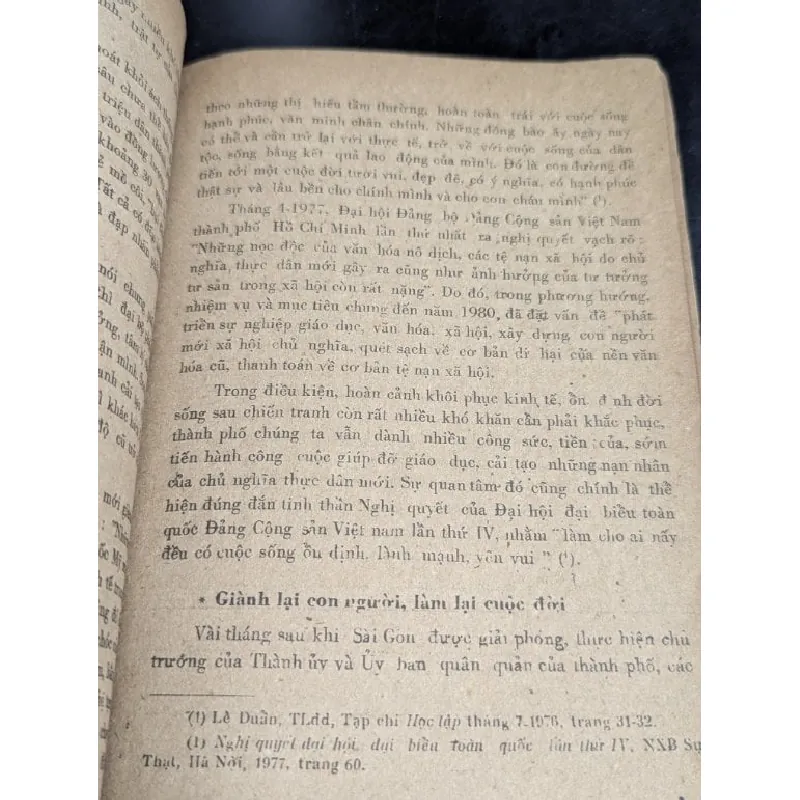 theo những thị hiếu tầm thường, hoàn toàn trái với cuộc sống
hạnh phúc, văn minh chân chính. Những đồng bào ấy ngày nay
có thể và cần trở lại với thực tế, trở về với cuộc sống của dân
tộc, sống bằng kết quả lao động của mình. Đó là con đường để
tiến tới một cuộc đời tươi vui, đẹp đẽ, có ý nghĩa, có hạnh phúc
thật sự và lâu bền cho chính mình và cho con cháu mình" (¹).
Tháng 4-1977, Đại hội Đảng bộ Đảng Cộng sản Việt Nam
thành phố Hồ Chí Minh lần thứ nhất ra nghị quyết vạch rõ:
"Những nọc độc của văn hóa nô dịch, các tệ nạn xã hội do chủ
nghĩa thực dân mới gây ra cũng như ảnh hưởng của tư tưởng
tư sản trong xã hội còn rất nặng". Do đó, trong phương hướng,
nhiệm vụ và mục tiêu chung đến năm 1980, đã đặt vấn đề "phát
triển sự nghiệp giáo dục, văn hóa, xã hội, xây dựng con người
mới xã hội chủ nghĩa, quét sạch về cơ bản di hại của nền văn
hóa cũ, thanh toán về cơ bản tệ nạn xã hội.
Trong điều kiện, hoàn cảnh khôi phục kinh tế, ổn đ nh đời
sống sau chiến tranh còn rất nhiều khó khăn cần phải khắc phục,
thành phố chúng ta vẫn dành nhiều công sức, tiền của, sớm
tiến hành công cuộc giúp đỡ giáo dục, cải tạo những nạn nhân
của chủ nghĩa thực dân mới. Sự quan tâm đó cũng chính là thể
hiện đúng đắn tinh thần Nghị quyết của Đại hội đại biểu toàn
quốc Đảng Cộng sản Việt nam lần thứ IV, nhằm "làm cho ai nấy
đều có cuộc sống ổn định, lành mạnh, yên vui" (¹).
• Giành lại con người, làm lại cuộc đời
Vài tháng sau khi Sài Gòn được giải phóng, thực hiện chủ
trương của Thành ủy và Ủy ban quân quản của thành phố, các
(1) Lê Duẩn, TLđd, Tạp chí Học tập tháng 7-1976, trang 31-32.
(1) Nghị quyết đại hội đại biểu toàn quốc lần thứ IV, NXB Sự
Thật, Hà Nội, 1977, trang 60.